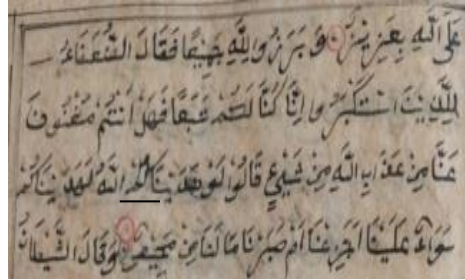 عَلَى اللّٰهِ بِعَزِيْزٍ وَ بَرَزُوا لِلّٰهِ جَمِيْعًا فَقَالَ الضُّعَفَاءُ
لِلَّذِيْنَ اسْتَكْبَرُوا اِنَّا كُنَّا لَكُمْ تَبَعًا فَهَلْ اَنْتُمْ مُغْنُوْنَ
عَنَّا مِنْ عَذَابِ اللّٰهِ مِنْ شَيْءٍ قَالُوا لَوْ هَدٰىنَا اللّٰهُ لَهَدَيْنَاكُمْ
سَوَاءٌ عَلَيْنَا اَجَزِعْنَا اَمْ صَبَرْنَا مَا لَنَا مِنْ مَحِيْصٍ وَقَالَ الشَّيْطَانُ